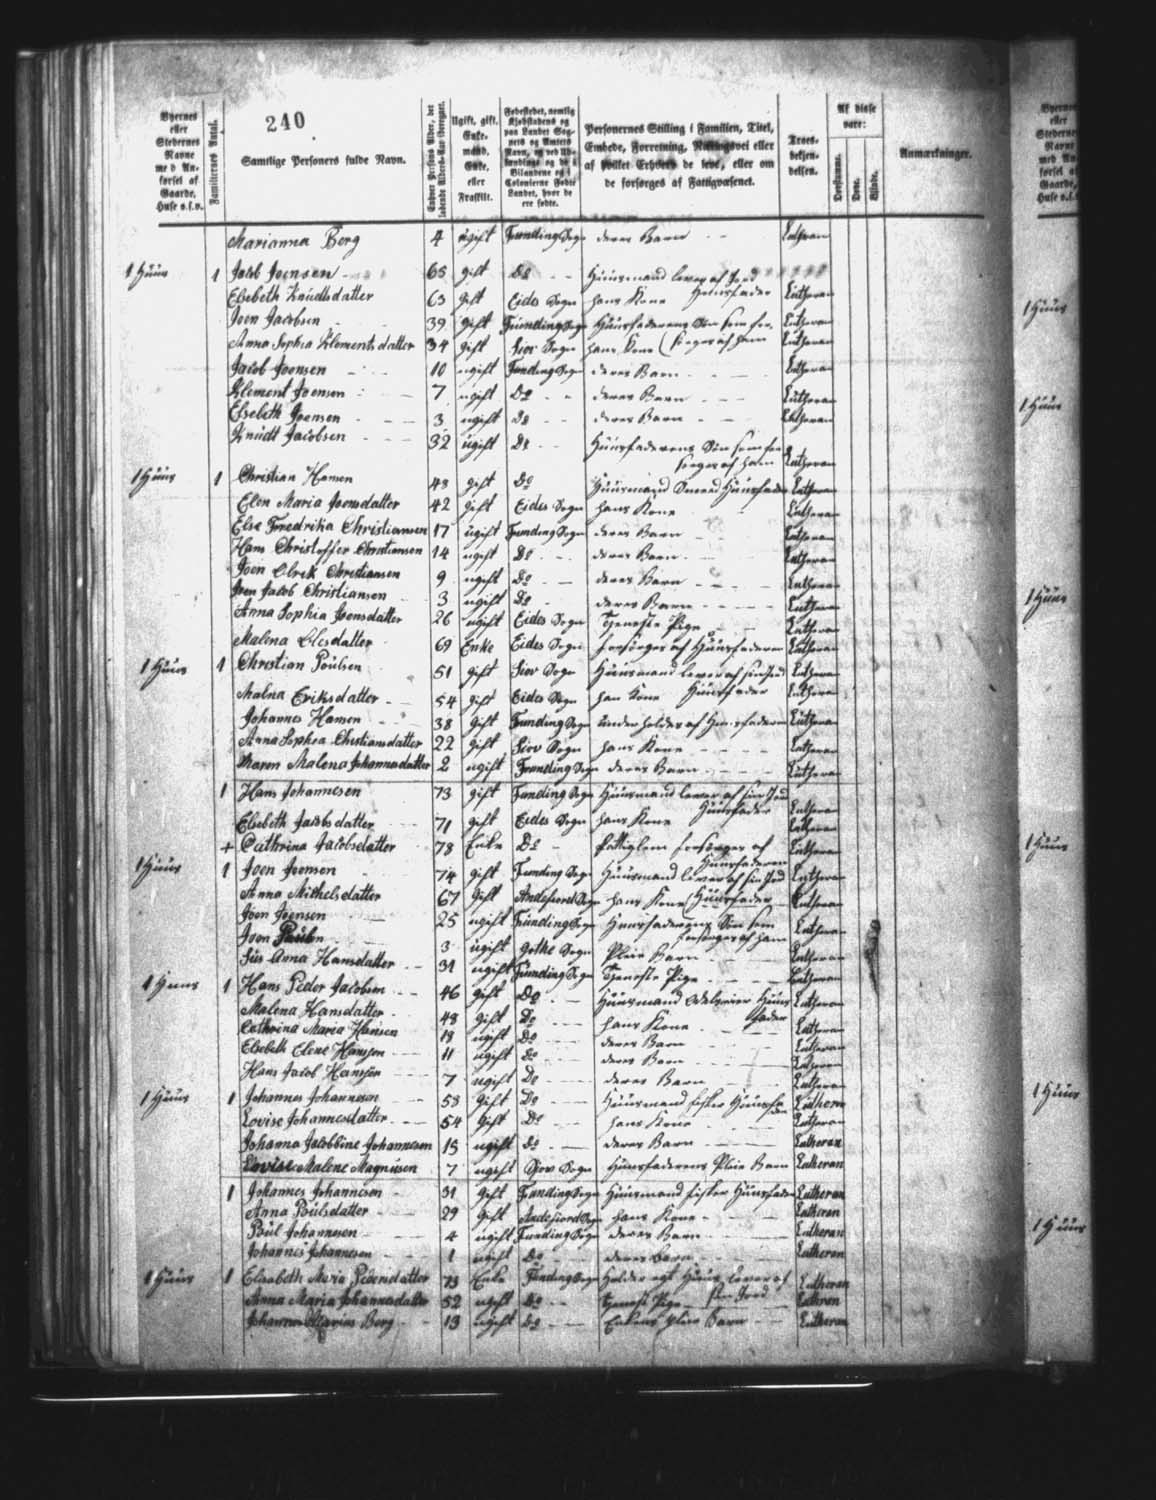 Byernes eller Stedernes Navne med Anførsel af Gaarde, Huse o.s.v.
Familiernes Antal.
240
Samtlige Personers fulde Navn.
Enhver Persons Alder, det løbende Alders-Aar iberegnet.
Ugift, gift, Enkemand, Enke, eller Fraskilt.
Fødestedet, nemlig Kjøbstadens og paa Landet Sognets og Amtets Navn,
Personernes Stilling i Familien, Titel, Embede, Forretning, Næringsvei eller af hvilket Erhverv de leve, eller om de forsørges af Fattigvæsenet.
Troesbekjendelsen.
Af disse vare:
Døvstumme.
Døve.
Blinde.
Anmærkninger.
Marianna Berg 4 ugift Funding Sogn deres Barn - - Lutheran
1 Huus 1 Jacob Joensen 65 gift Do - - Huusmand lever af Jord Huusfader
Elsebeth Knudsdatter 63 gift Eides Sogn hans Kone Lutheran
Joen Jacobsen 39 gift Funding Sogn Huusfaderens Søn som forsørges af ham Lutheran
Anna Sophia Klementsdatter 34 gift Siov Sogn hans Kone Lutheran
Jacob Joensen 10 ugift Funding Sogn deres Barn Lutheran
Klement Joensen 7 ugift Do deres Barn Lutheran
Elsebeth Joensen 3 ugift Do deres Barn Lutheran
Knudt Jacobsen 32 ugift Do Huusfaderens Søn som forsørges af ham Lutheran
1 Huus 1 Christian Hansen 43 gift Do Huusmand Huusfader Lutheran
Elen Maria Joensdatter 42 gift Eides Sogn hans Kone Lutheran
Else Fredrika Christiansen 17 ugift Funding Sogn deres Barn Lutheran
Hans Christoffer Christiansen 14 ugift Do deres Barn Lutheran
Joen Ulrik Christiansen 9 ugift Do deres Barn Lutheran
Jacob Christiansen 3 ugift Do deres Barn Lutheran
Anna Sophia Joensdatter 26 ugift Eides Sogn Tjeneste Pige Lutheran
Malena Olesdatter 69 Enke Eides Sogn forsørges af Huusfaderen Lutheran
1 Huus 1 Christian Poulsen 51 gift Siov Sogn Huusmand lever af sin Jord Huusfader Lutheran
Malna Eriksdatter 54 gift Eides Sogn hans Kone Lutheran
Johannes Hansen 38 gift Funding Sogn underholdes af Huusfaderen Lutheran
Anna Sophia Christiansdatter 22 gift Siov Sogn hans Kone Lutheran
Maren Malena Johannesdatter 2 ugift Funding Sogn deres Barn Lutheran
1 Hans Johannesen 73 gift Funding Sogn Huusmand lever af sin Jord Huusfader Lutheran
Elsebeth Jacobsdatter 71 gift Eides Sogn hans Kone Lutheran
+ Cathrina Jacobsdatter 78 Enke Do - Fattiglem forsørges af Huusfaderen Lutheran
1 Huus 1 Joen Joensen 74 gift Funding Sogn Huusmand lever af sin Jord Huusfader Lutheran
Anna Michelsdatter 67 gift Andefiord Sogn hans Kone Lutheran
Joen Joensen 25 ugift Funding Sogn Huusfaderens Søn som forsørges af ham Lutheran
Joen 3 ugift Gothe Sogn Pleie Barn Lutheran
Anna Hansdatter 31 ugift Funding Sogn Tjeneste Pige Lutheran
1 Huus 1 Hans Peder Jacobsen 46 gift Do Huusmand Huusfader Lutheran
Malena Hansdatter 48 gift Do hans Kone Lutheran
Cathrina Maria Hansen 18 ugift Do deres Barn Lutheran
Elsebeth Elene Hansen 11 ugift Do deres Barn Lutheran
Hans Jacob Hansen 7 ugift Do deres Barn Lutheran
1 Huus 1 Johannes Johannesen 53 gift Do Huusmand fisker Huusfader Lutheran
Lovise Johannesdatter 54 gift Do hans Kone Lutheran
Johanna Jacobbine Johannesen 15 ugift Do deres Barn Lutheran
Lovise Malene Magnusen 7 ugift Siov Sogn Huusfaderens Pleie Barn Lutheran
1 Johannes Johannesen 31 gift Funding Sogn Huusmand fisker Huusfader Lutheran
Anna Poulsdatter 29 gift Andefiord Sogn hans Kone Lutheran
Poul Johannesen 4 ugift Funding Sogn deres Barn Lutheran
Johannes Johannesen 1 ugift Do deres Barn Lutheran
1 Huus 1 Elisabeth Maria Pedersdatter 73 Enke Funding Sogn Holder egt Huus lever af sin Jord Lutheran
Anna Maria Johannesdatter 52 ugift Do Tjeneste Pige Lutheran
Johannes Marius Berg 13 ugift Do Enkens pleie Barn Lutheran
1 Huus
1 Huus
1 Huus
1 Huus
1 Huus
1 Huus